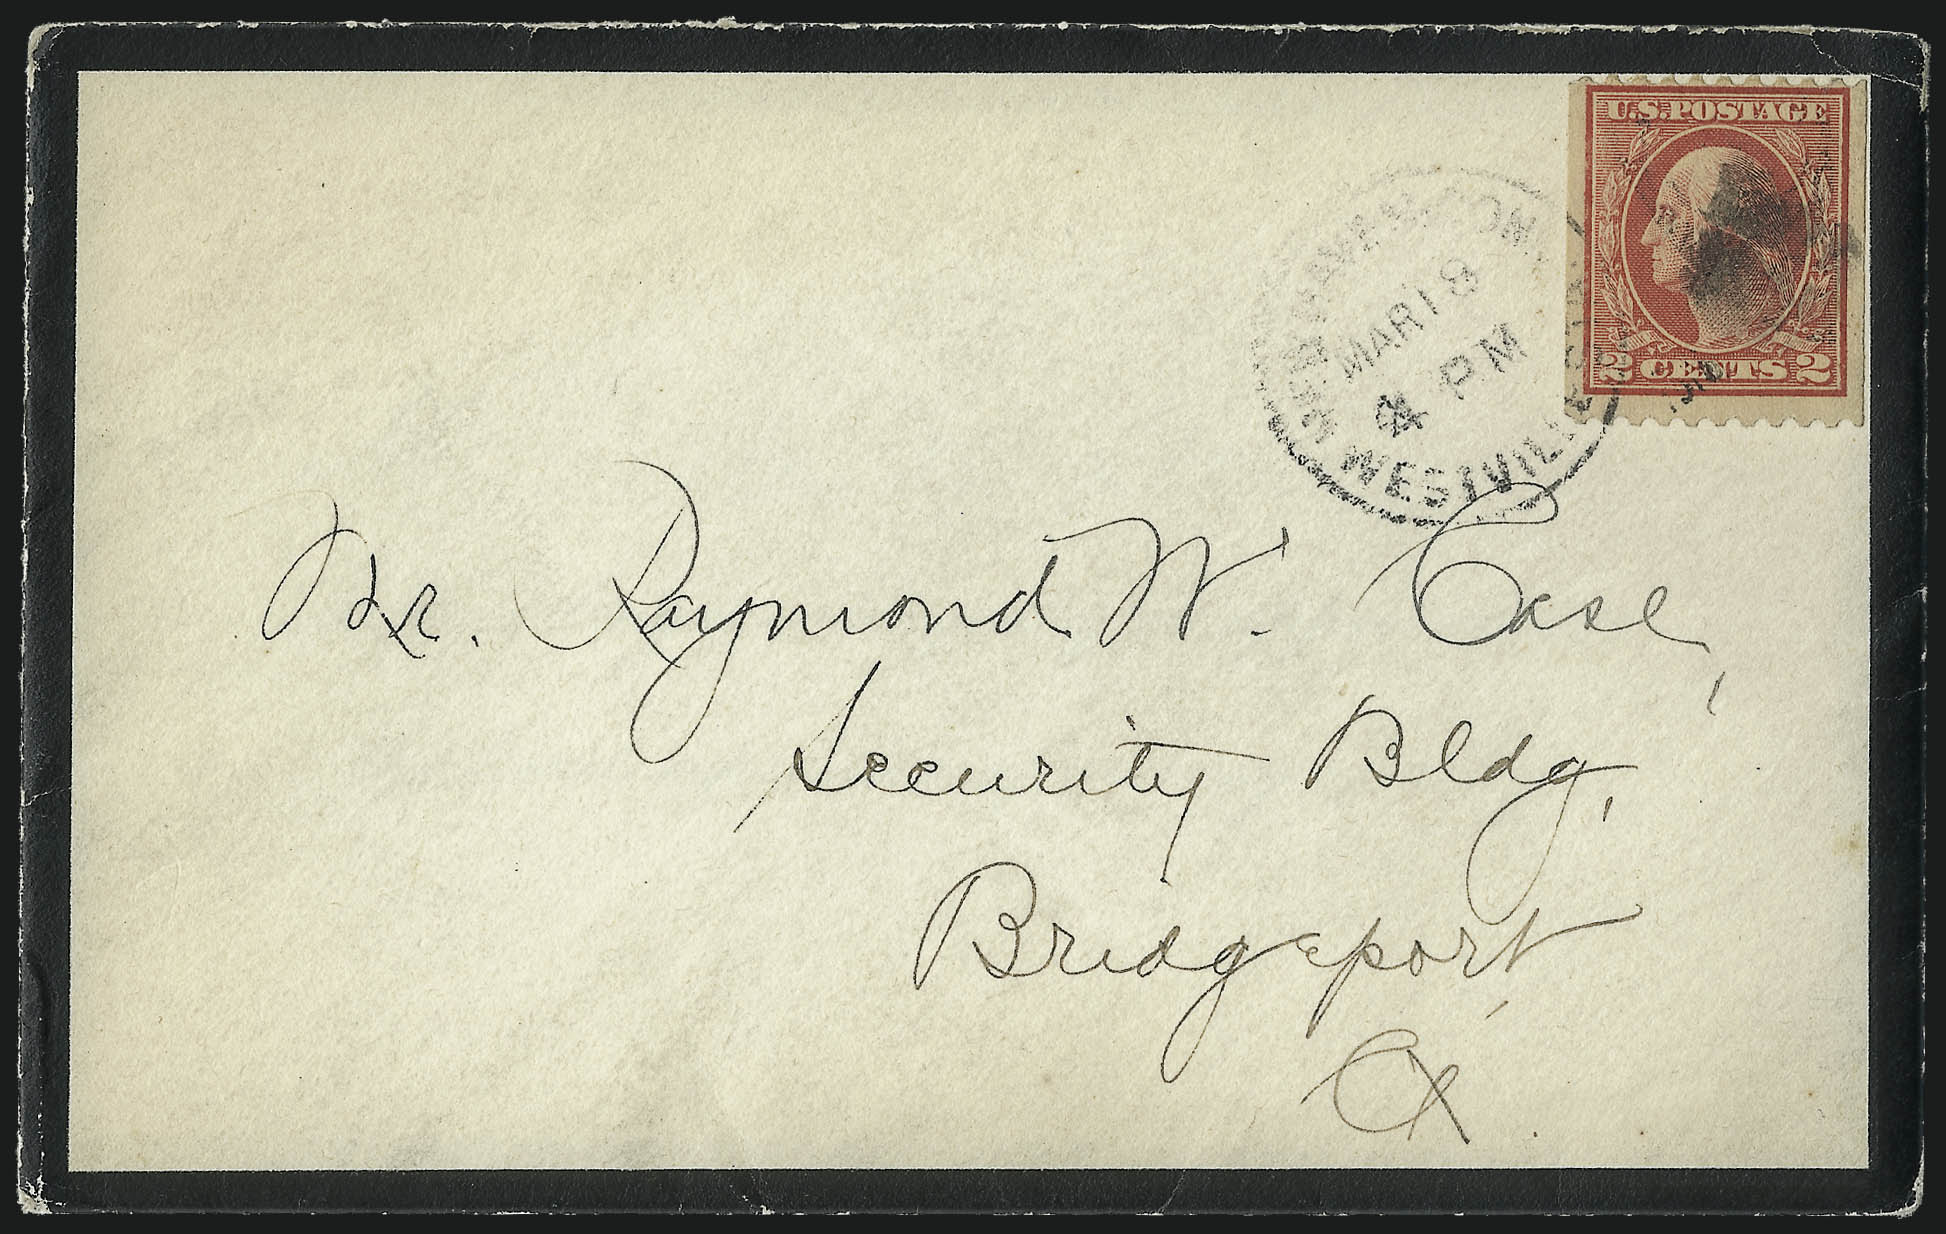 U.S. POSTAGE
2 CENTS 2
NEW HAVEN, CONN.
MAR 18
4 PM
WESTVILLE STA.
Mr. Raymond W. Case,
Security Bldg,
Bridgeport,
Ct.